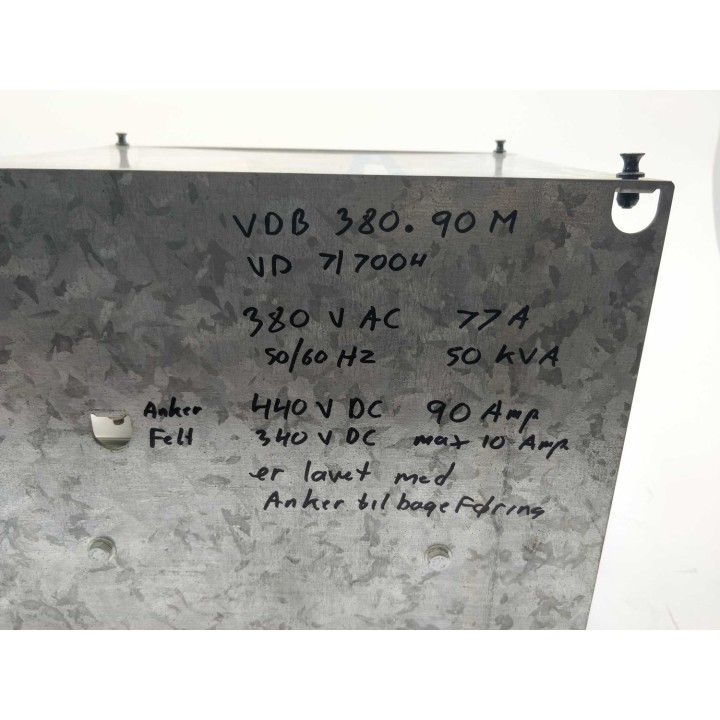 VDB 380.90 M
VD 7/7004
380 V AC 77A
50/60 Hz 50 KVA
Anker 440 V DC 90 Amp
Felt 340 V DC max 10 Amp
er lavet med
Anker tilbageføring